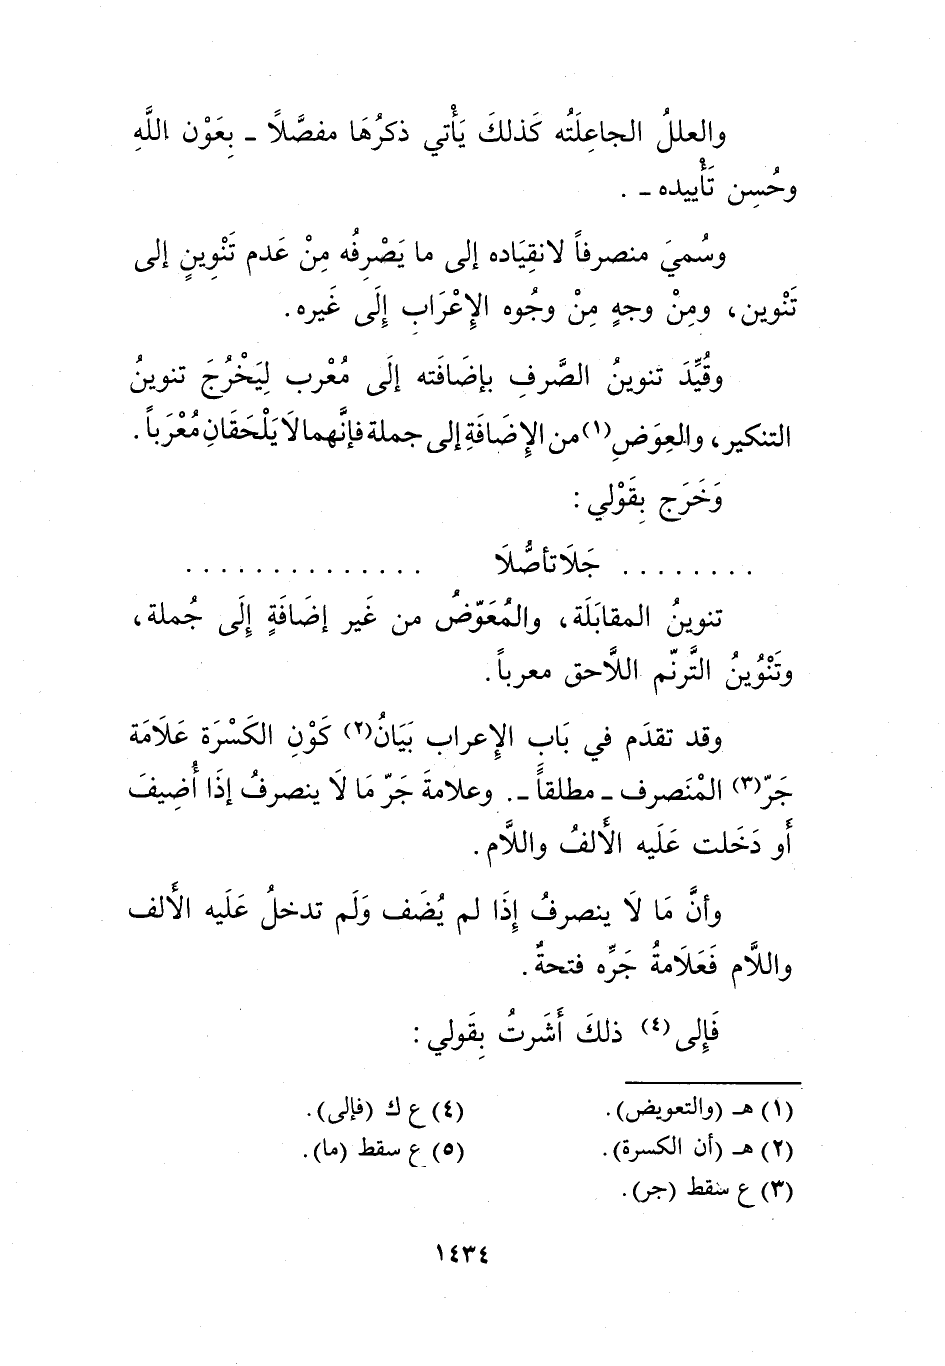 والعللُ الجاعِلَتُه كَذلكَ يَأْتي ذكرُهَا مفصَّلاً ـ بِعَوْن اللَّهِ
وحُسِن تَأْييده ـ .
وسُميَ منصرفاً لانقِيَاده إلى ما يَصْرِفُه مِنْ عَدم تَنْوِينٍ إلى
تَنْوين، ومِنْ وجهٍ مِنْ وجُوه الإِعْرَابِ إِلَى غَيره.
وقُيِّدَ تنوينُ الصَّرفِ بإضَافَته إلَى مُعْرب لِيَخْرُجَ تنوينُ
التنكير، والعِوَضِ(١) من الإِضَافَةِ إلى جملة فإنَّهما لاَ يَلْحَقَانِ مُعْرَباً.
وَخَرَج بِقَوْلي :
. . . . . . . . جَلَا تأصُّلَا . . . . . . . . . . . . . .
تنوينُ المقابَلَة، والمُعَوّضُ من غَير إضَافَةٍ إِلَى جُملة،
وتَنْوُينُ التَّرنّم اللاَّحق معرباً.
وقد تقدَم في بَابِ الإِعراب بَيَانُ(٢) كَوْنِ الكَسْرَة عَلَامَة
جَرّ(٣) المْنَصرف ـ مطلقاً ـ. وعلامةَ جَرّ مَا لَا ينصرفُ إذَا أُضِيفَ
أَو دَخَلت عَلَيه الأَلفُ واللَّام.
وأنَّ مَا لَا ينصرفُ إِذَا لم يُضَف وَلَم تدخلُ عَلَيه الأَلف
واللَّام فَعَلَامةُ جَرِّه فتحةٌ.
فَإِلى(٤) ذلكَ أَشَرتُ بِقَولي :
(١) هـ (والتعويض).
(٢) هـ (أن الكسرة).
(٣) ع سقط (جر).
(٤) ع ك (فإلى).
(٥) ع سقط (ما).
١٤٣٤